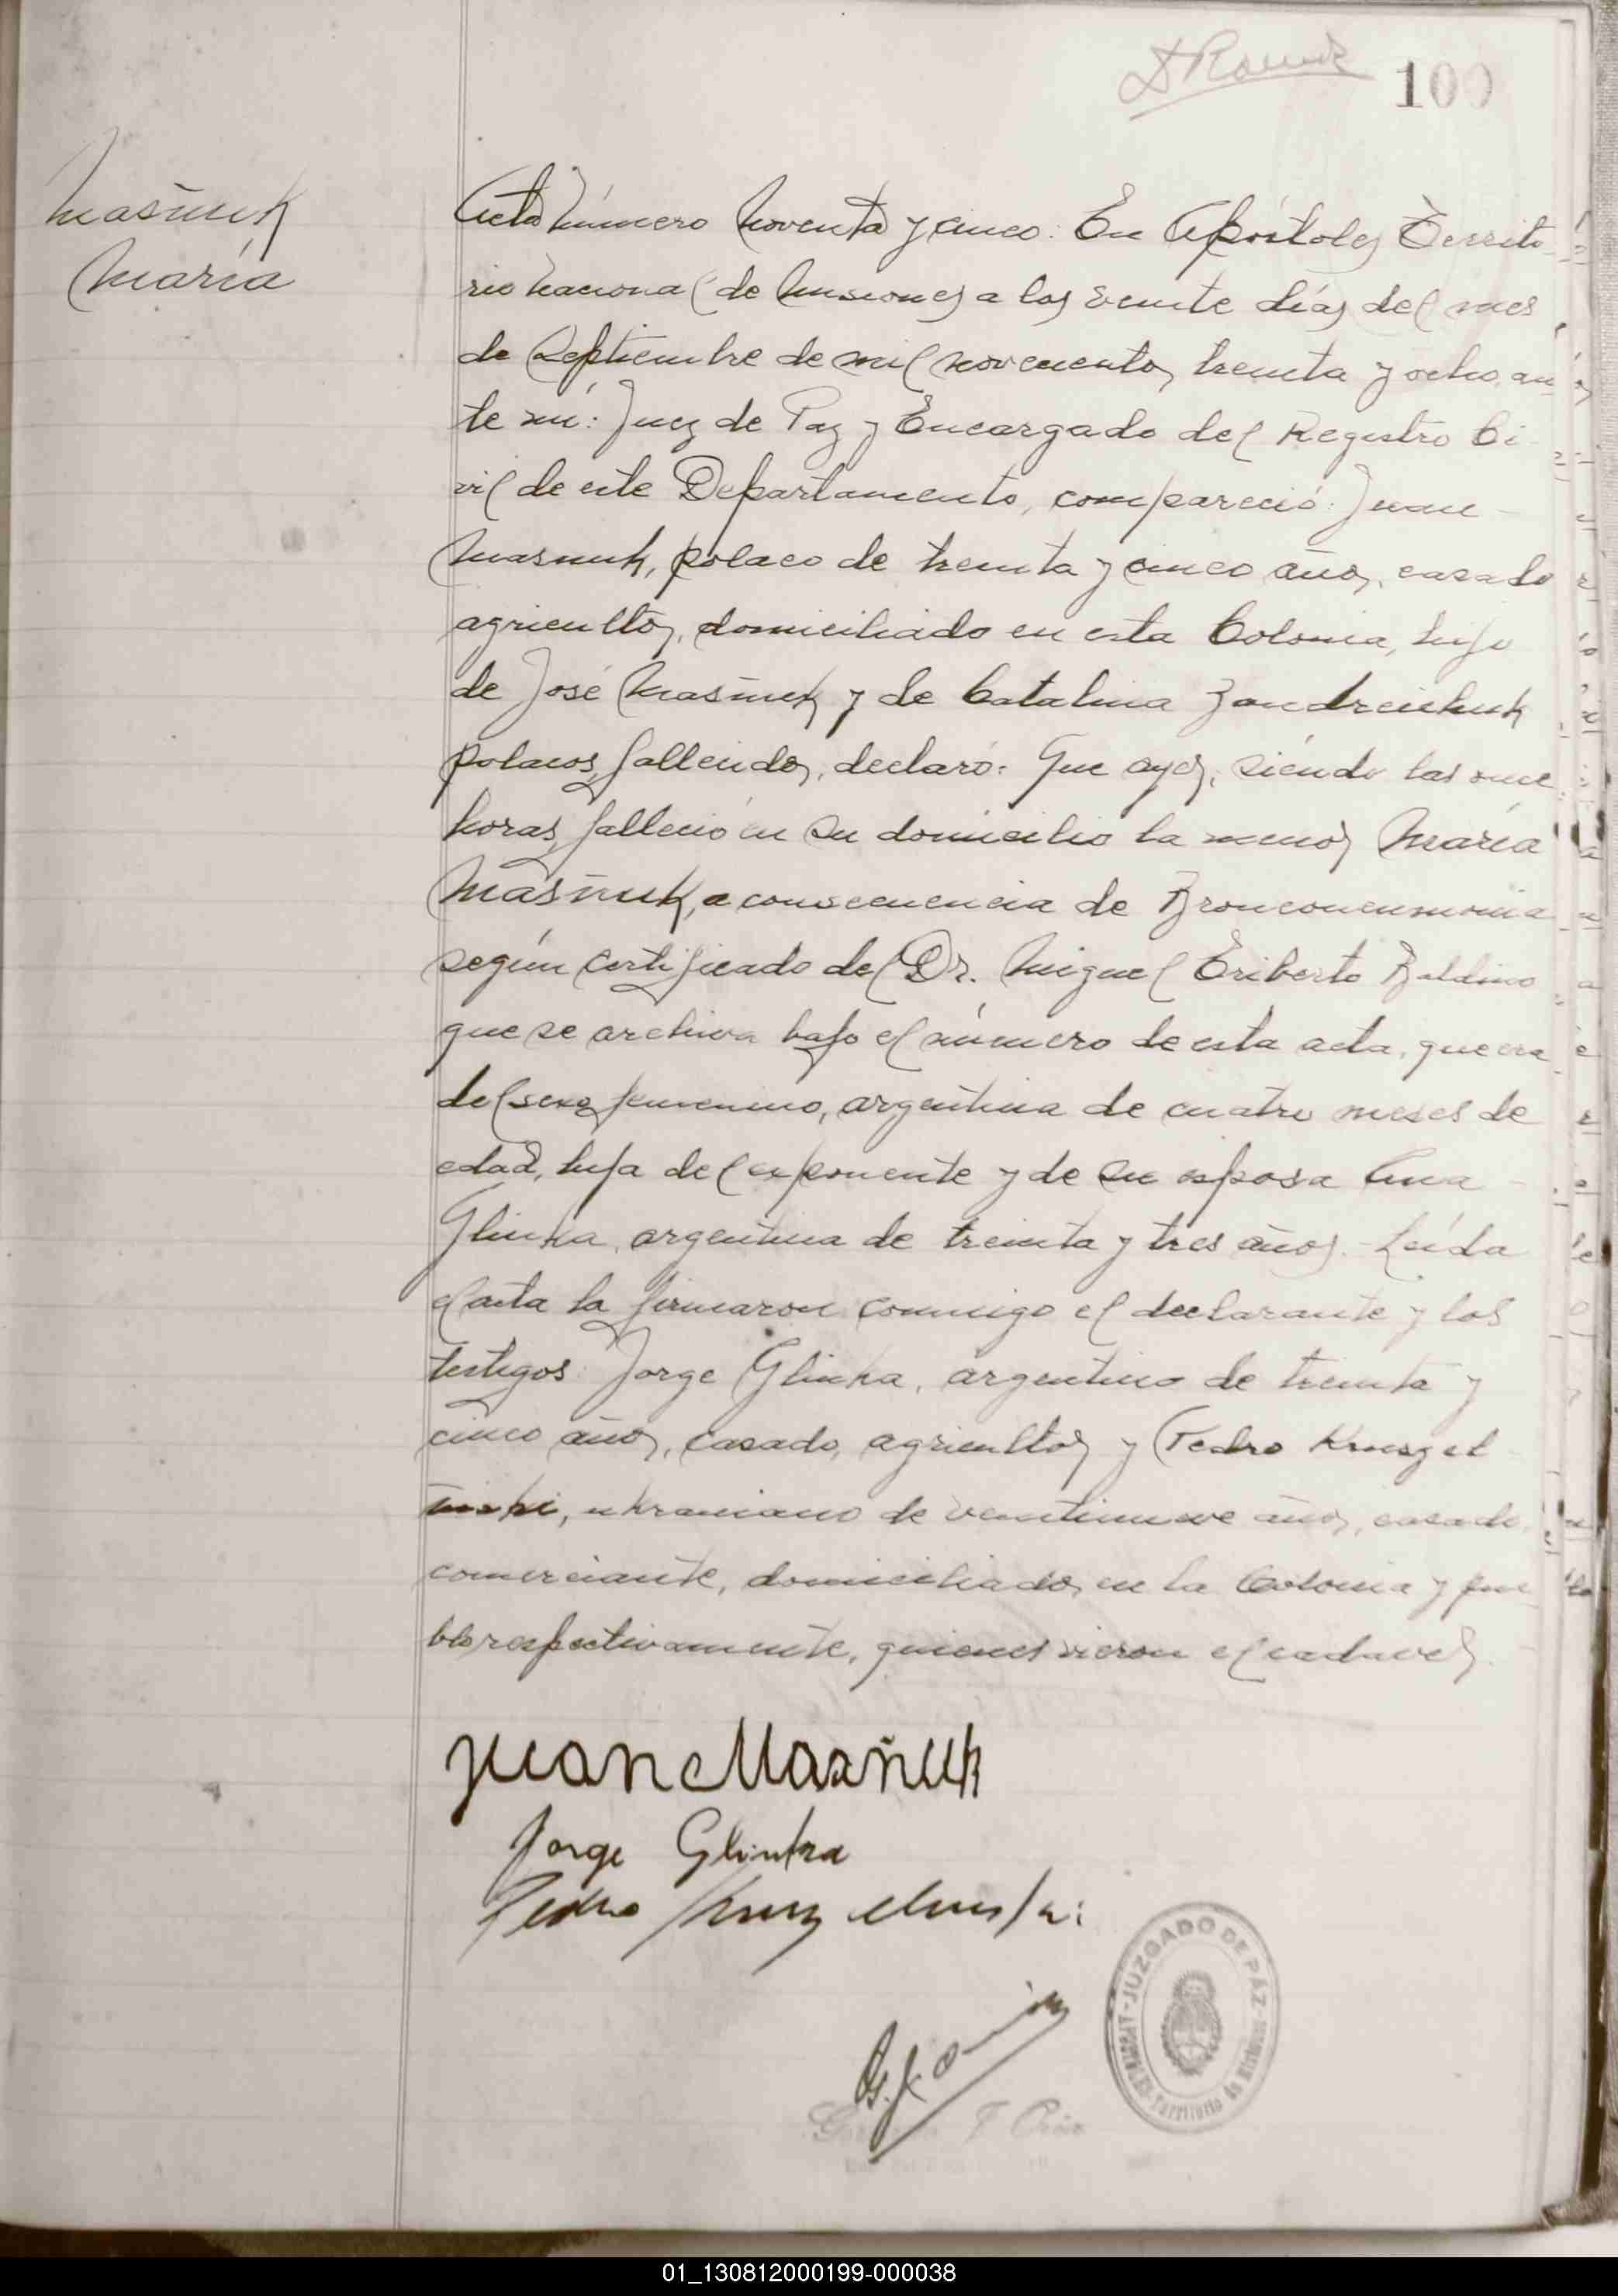 100
Masñuk
María
Acta número noventa y cinco: En Apóstoles Territo-
rio Nacional de Misiones a los veinte días del mes
de Septiembre de mil novecientos treinta y ocho, an-
te mí: Juez de Paz y Encargado del Registro Ci-
vil de este Departamento, compareció: Juan
Masnuk, polaco de treinta y cinco años, casado
agricultor, domiciliado en esta Colonia, hijo
de José Masñuk y de Catalina Zandreichuk
polacos, fallecidos, declaró: Que ayer, siendo las once
horas, falleció en su domicilio la menor María
Masñuk, a consecuencia de Bronconeumonia
según certificado del Dr. Miguel Eriberto Baldino
que se archiva bajo el número de esta acta, que era
del sexo femenino, argentina de cuatro meses de
edad, hija del exponente y de su esposa Ana
Glinka, argentina de treinta y tres años. Leída
el acta la firmaron conmigo el declarante y los
testigos: Jorge Glinka, argentino de treinta y
cinco años, casado, agricultor y Pedro
ukraniano de veintinueve años, casado,
comerciante, domiciliados en la Colonia y pue
blo respectivamente, quienes vieron el cadaver
Juan Masñuk
Jorge Glinka
Pedro
JUZGADO DE PAZ
Territorio de Misiones
01_130812000199-000038